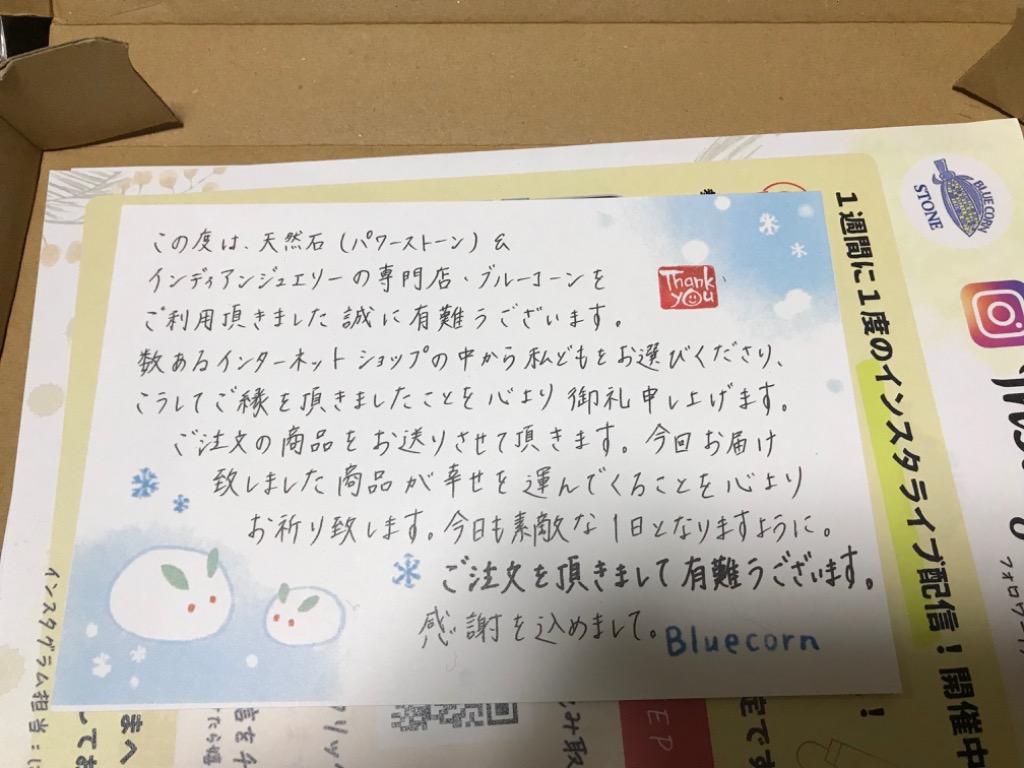 この度は、天然石(パワーストーン)&
インディアンジュエリーの専門店・ブルーコーンを
ご利用頂きました誠に有難うございます。
数あるインターネットショップの中から私どもをお選びくださり、
こうしてご縁を頂きましたことを心より御礼申し上げます。
ご注文の商品をお送りさせて頂きます。今回お届け
致しました商品が幸せを運んでくることを心より
お祈り致します。今日も素敵な1日となりますように。
ご注文を頂きまして有難うございます。
感謝を込めまして。Bluecorn
Thank
you
BLUE CORN
STONE
1週間に1度のインスタライブ配信!開催中
インスタグラム担当: